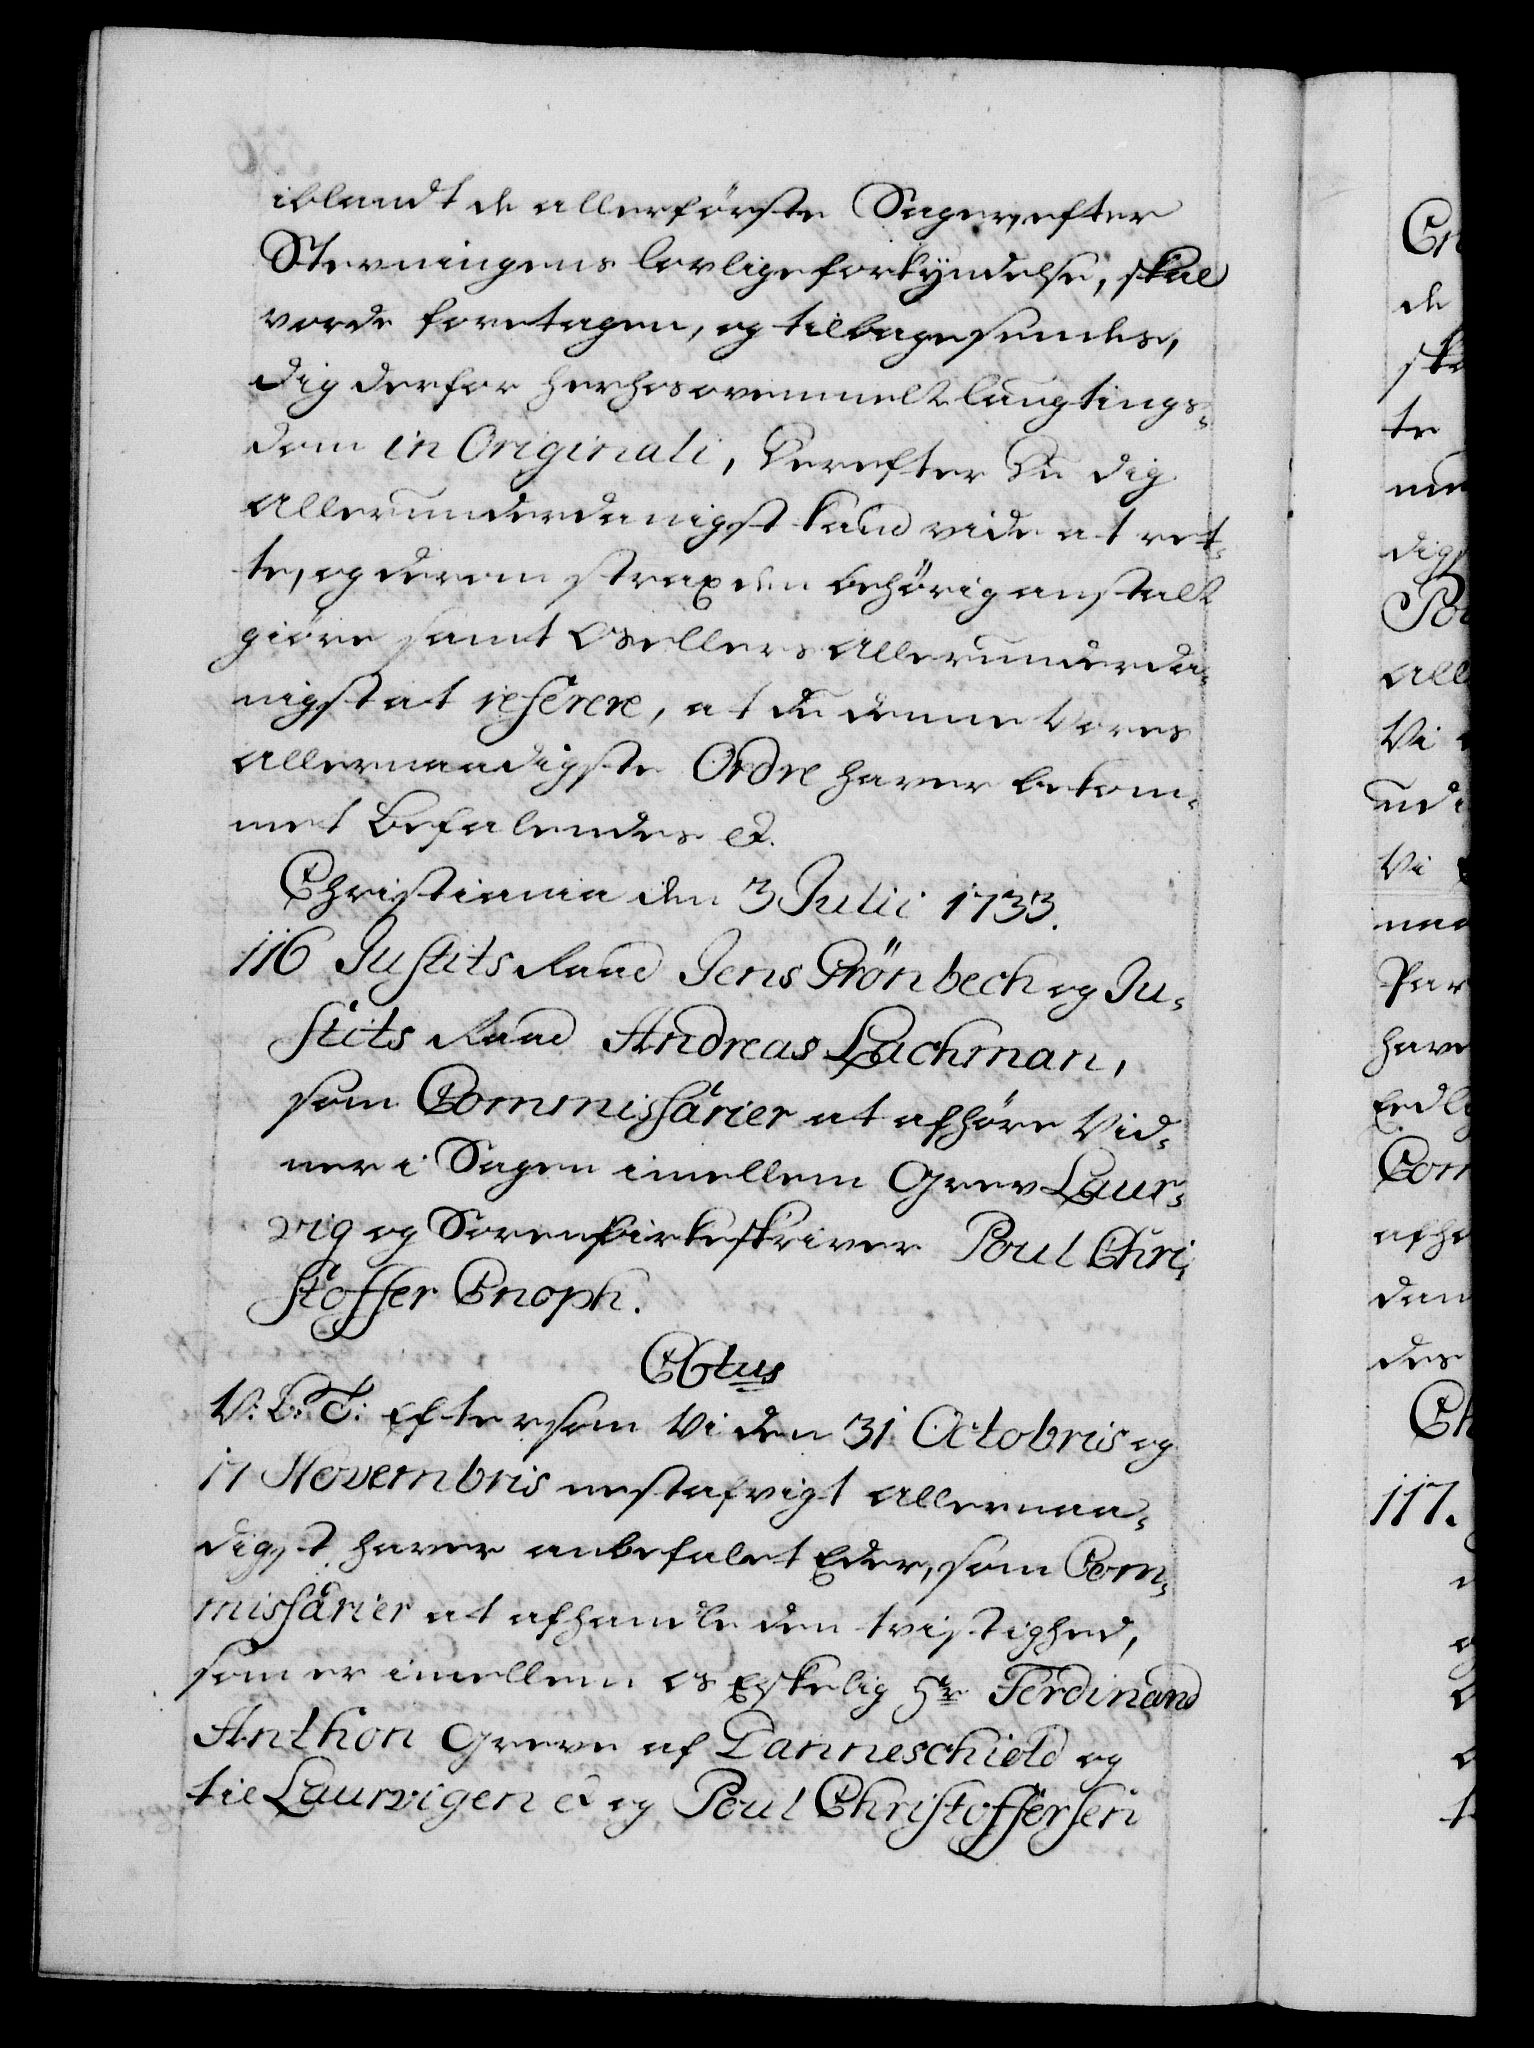 iblandt de allerförste Sager, efter
Stevningens lovlige forkyndelse, skal
vorde foretagen, og tilbagesendes,
dig derfor herhos ovenmelte laugtings-
dom in Originali, Derefter Du dig
allerunderdanigst kand vide at ret-
te, og derom strax den behörig anstalt
giöre samt Os ellers allerunderda-
nigst at referere, at du denne Vores
allernaadigste Ordre haver bekom-
met Befalendes &.
Christiania den 3 Julii 1733.
116 Justits Raad Jens Grönbech og Ju-
stits Raad Andreas Lachman,
som Commissärier at afhöre Vid-
ner i Sagen imellem Grev Laur-
vig og Sorenbirkeskriver Poul Chri-
stoffer Cnoph.
C 6tus
V: G: T: Eftersom Vi den 31 Octobris og
17 Novembris nestafvigt allernaa-
digst haver anbefalet Eder, som Com-
missärier at afhandle den tvistighed,
som er imellem Os Elskelig Hr Ferdinand
Anthon Greve af Danneschiold og
til Laurvigen & og Poul Christoffersen
Cn
de
ska
te
dig
Pou
all
Vi
udi
Vi
naa
Par
have
Com
afhö
dan
des
Ch
117.